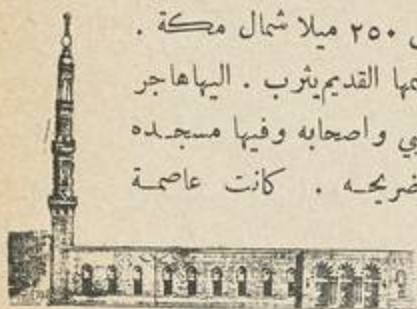 ٢٥٠ ميلا شمال مكة .
القديم يثرب . اليها هاجر
واصحابه وفيها مسجده
ضريحه . كانت عاصمة